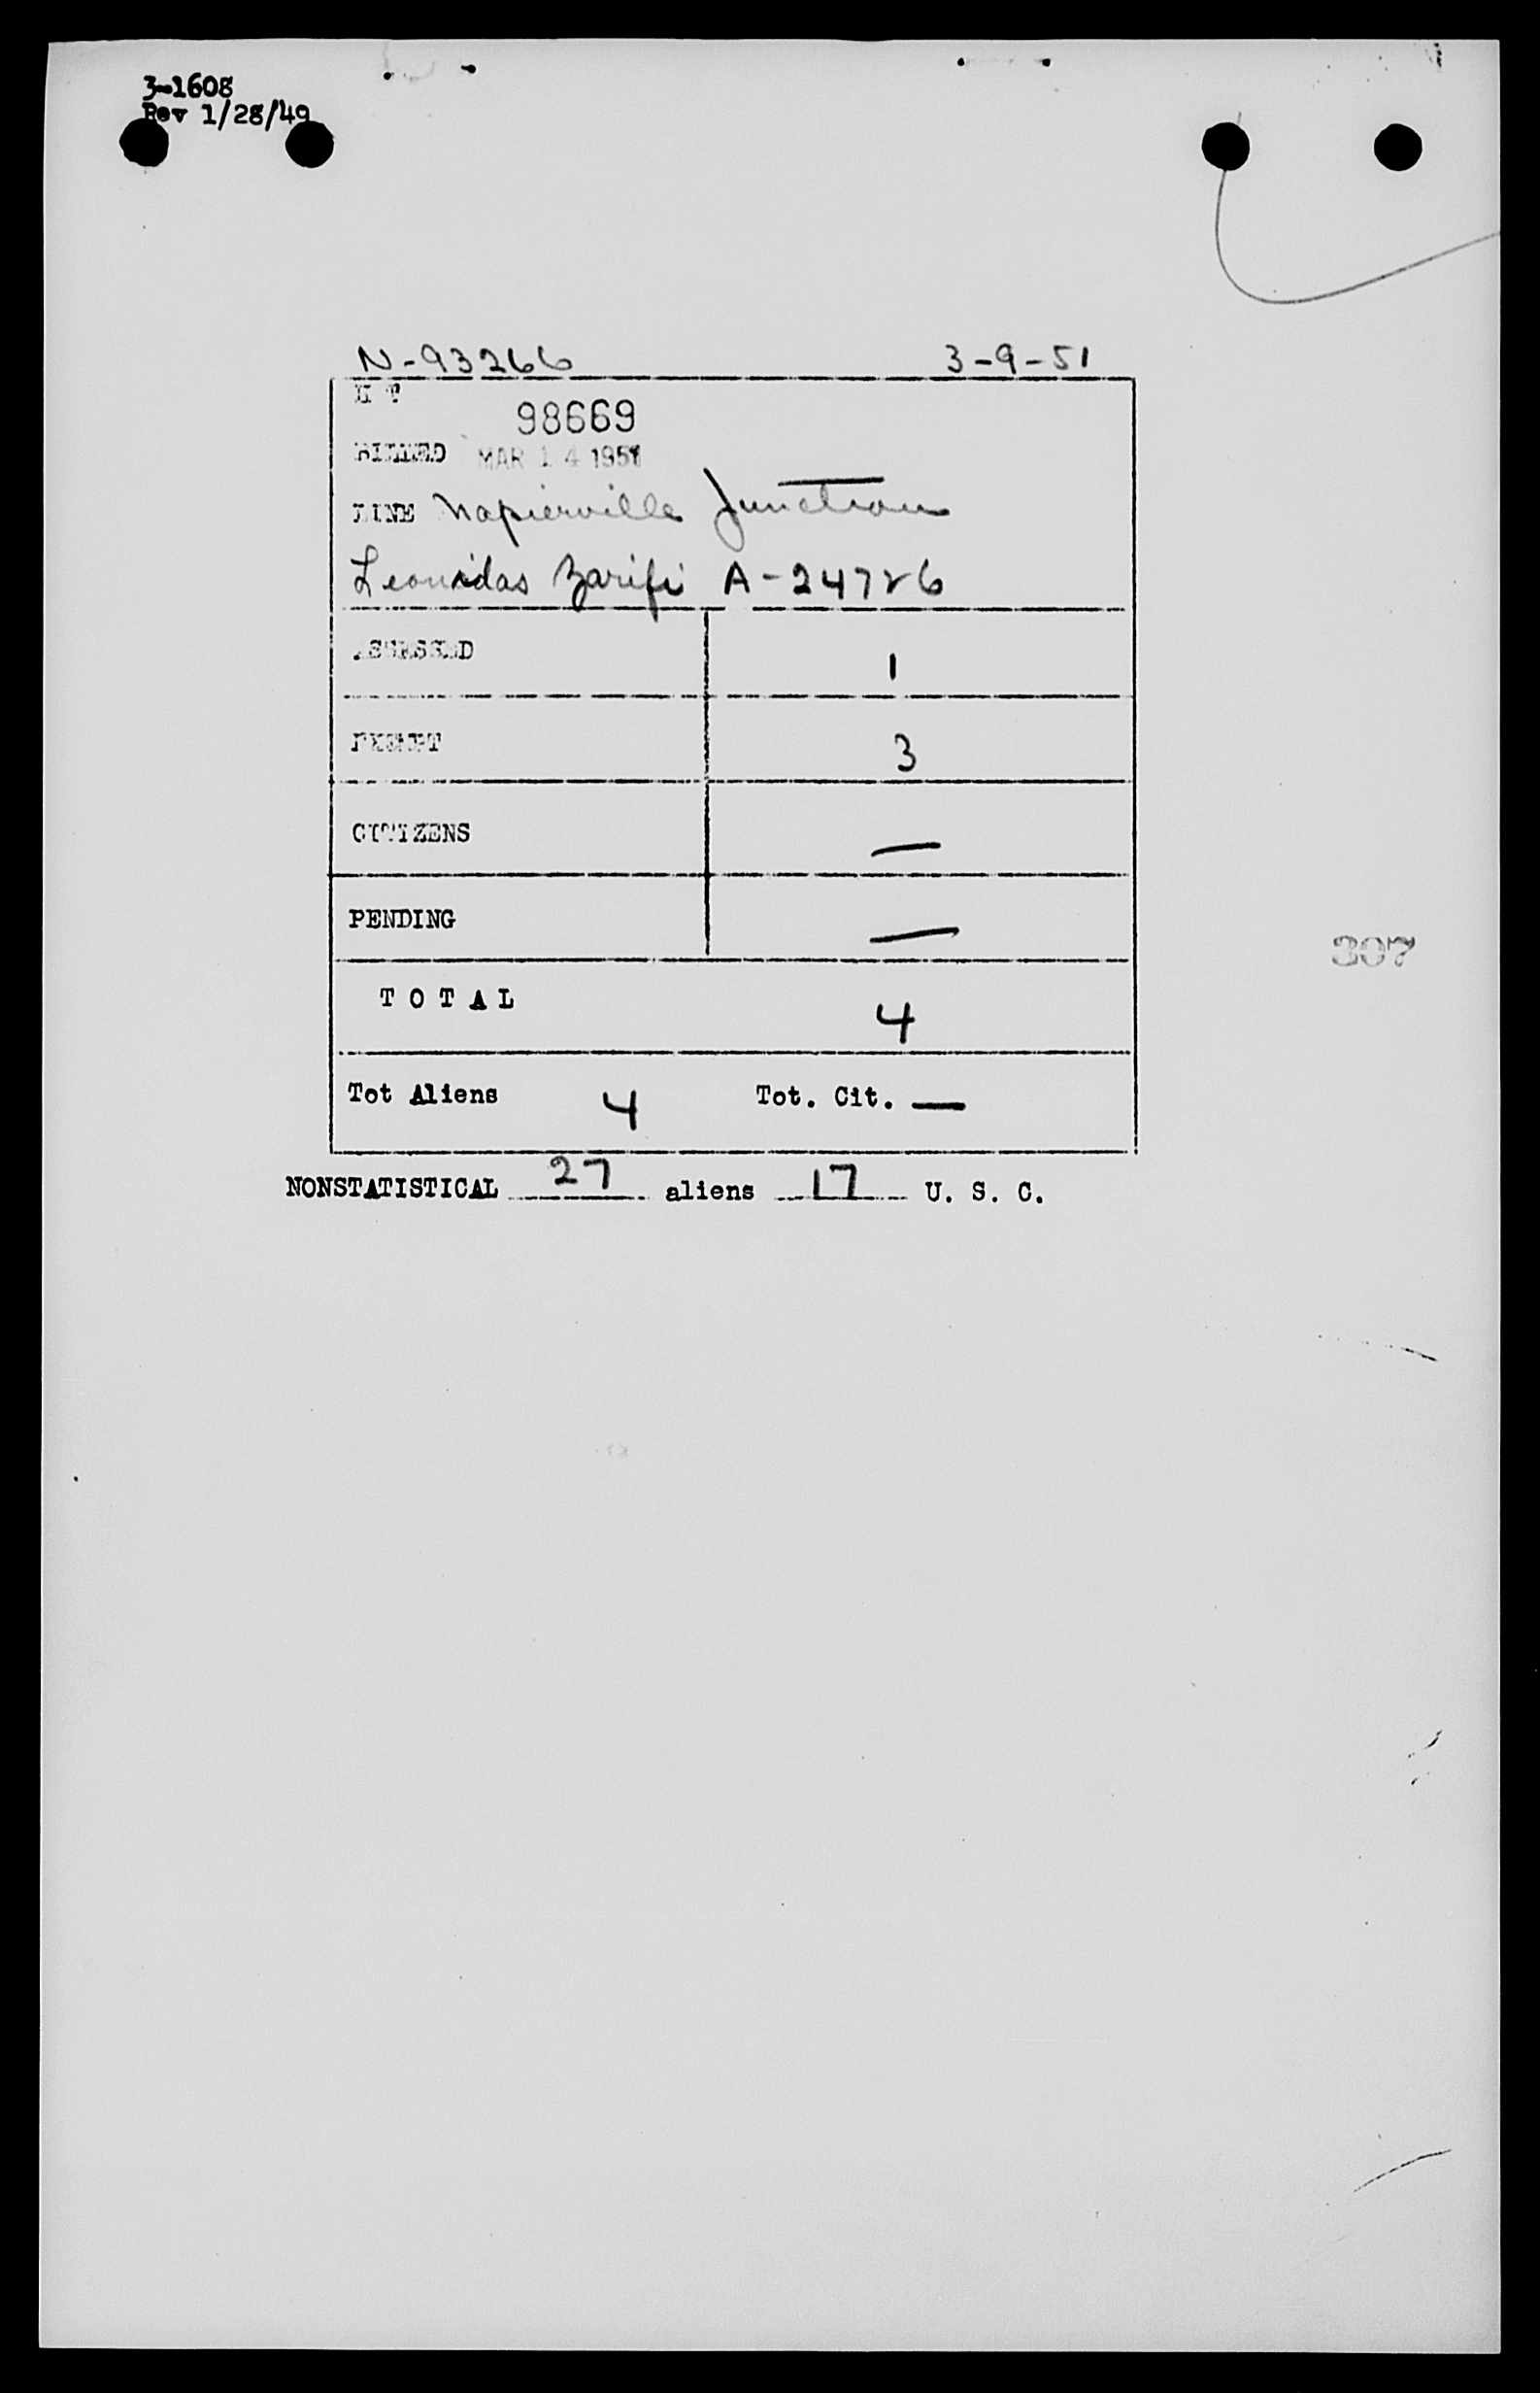 3-1608
Rev 1/28/49
N-93266 3-9-51
H T
98669
BILLED MAR 14 1951
LINE Napierville Junction
Leonidas Zarifi A-24726
ASSESSED 1
EXEMPT 3
CITIZENS —
PENDING —
307
TOTAL 4
Tot Aliens 4 Tot. Cit. —
NONSTATISTICAL 27 aliens 17 U. S. C.